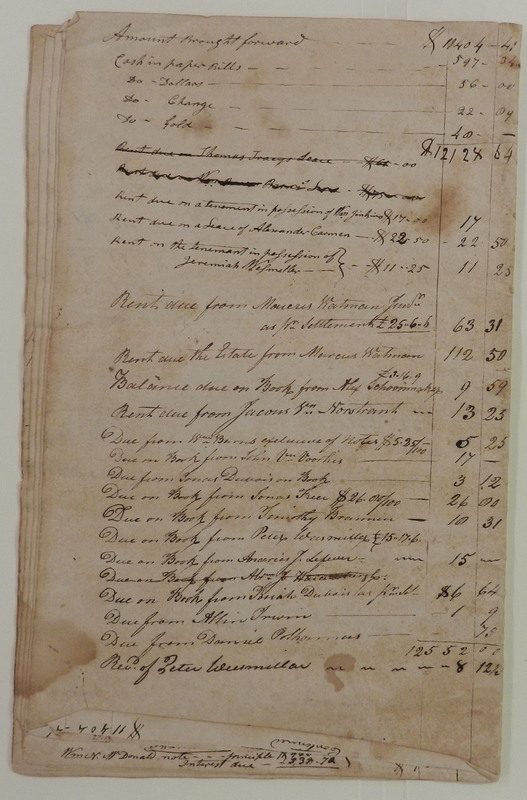 Amount Brought forward $11404 - 42
Cash in paper Bills 597 -
Do - Dollars 56 - 00
Do - Change 22 - 09
Do - Gold 48 -
Rent due on Thomas Lease - 00 $12128 64
Rent due on
Rent due on a tenement in possession of Wm Jenkins $17-00 17
Rent due on a Lease of Alexander Carmen - $22-50 - 22 50
Rent on the tenemant in possession of
Jeremiah Wesmiller - $11-25 11 25
Rent due from Marcus Wortman Junr
as pr Settlement £25-6-6 63 31
Rent due the Estate from Marcus Wortman 112 50
Balance due on Book from Alex Schoonmaker 9 59
Rent due from Jacobus Vn Norstrank 13 25
Due from Wm Barns exclusive of Notes $5-25/100 5 25
Due on Book from John Van Voorhis 17 -
Due from Jonas Dubois on Book 3 12
Due on Book from Jonas Freer $26-00/100 26 00
Due on Book from Timothy Boarman 10 31
Due on Book from Peter Wesmiller £15-17-6
Due on Book from Andries J. Lefever 15 -
Due on Book from Abm J
Due on Book from Josiah Dubois as pr 86 64
Due from Allin Irwin 1 9
Due from Daniel Polhammus 75
12552 00
Recd. of Peter Wesmillar 8 12½
$ 11404 -
Wm N. McDonald note principle
Interest due